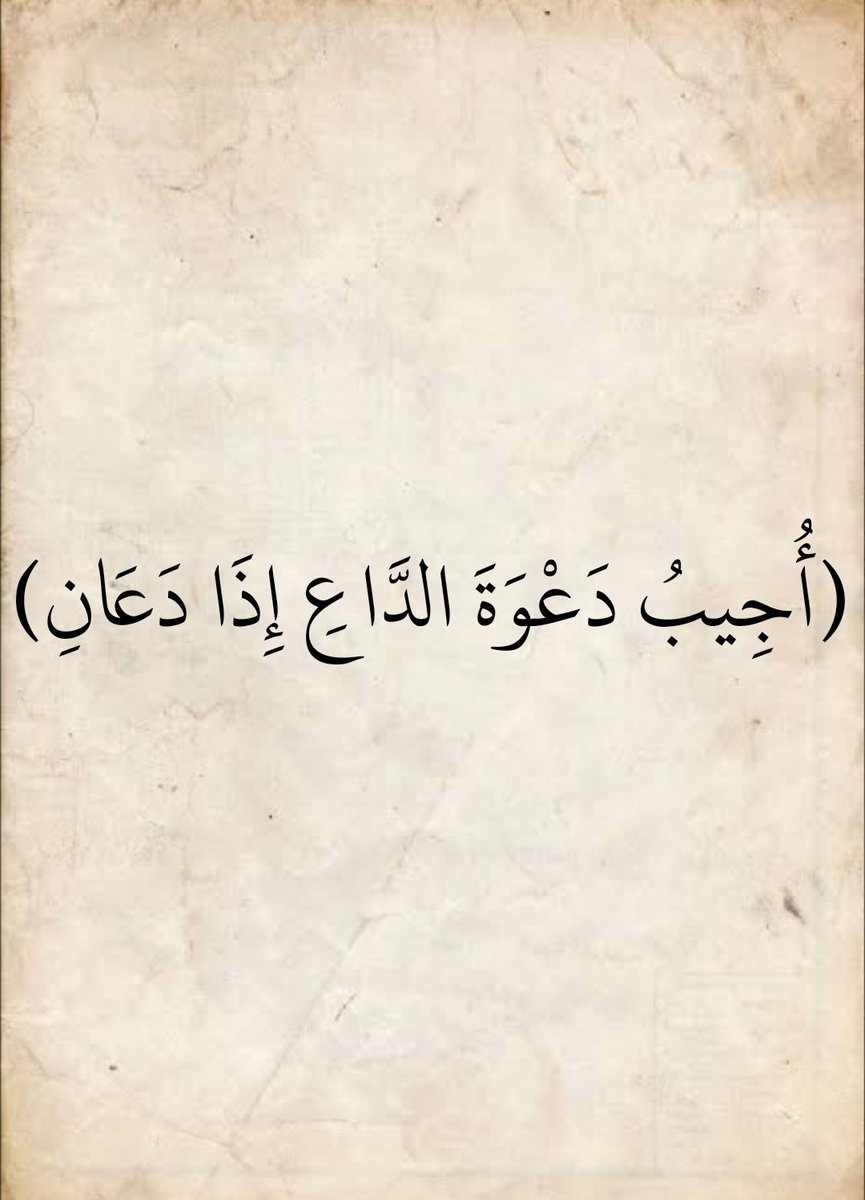 (أُجِيبُ دَعْوَةَ الدَّاعِ إِذَا دَعَانِ)